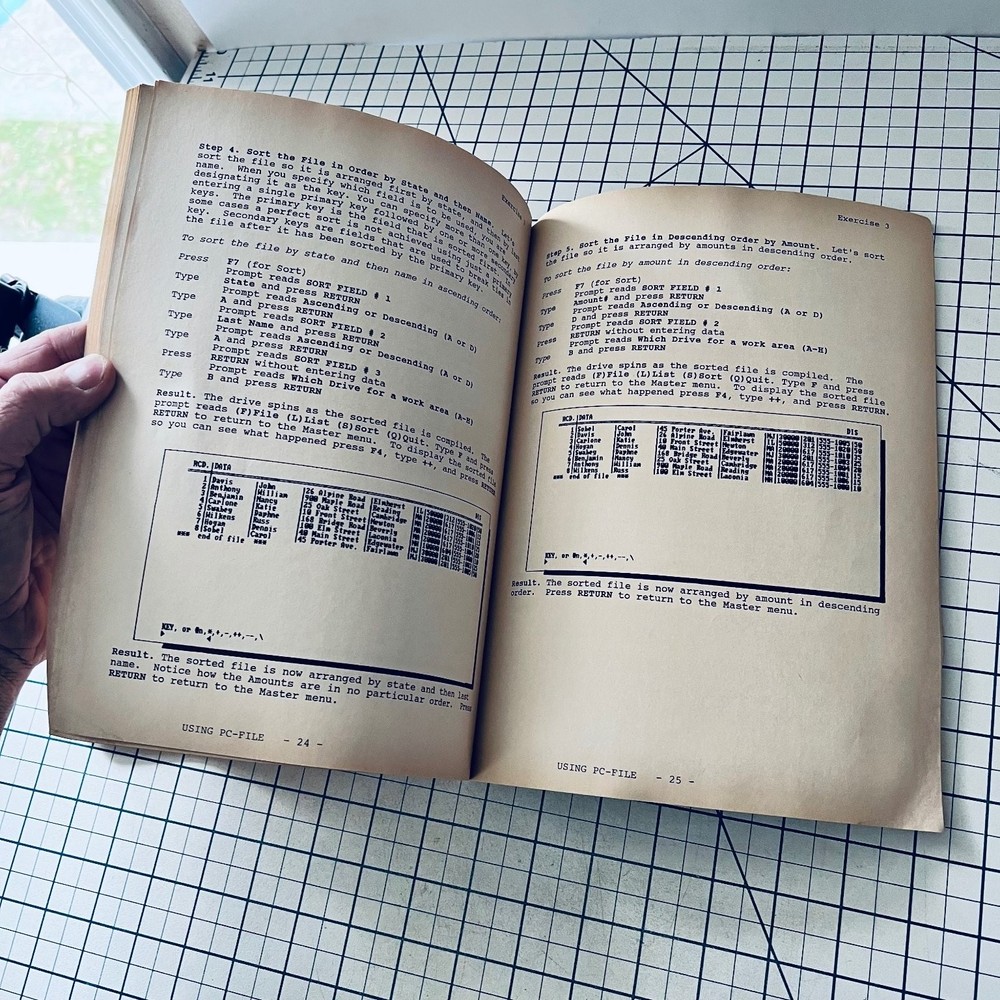 Exercise
Step 4. Sort the File in Order by State and then Name. Let's
sort the file so it is arranged first by state, and then by
name. When you specify which field is to be used, you are
designating it as the key. You can specify more than one key by
entering a single primary key followed by one or more secondary
keys. The primary key is the field that is sorted first. In
some cases a perfect sort is not achieved using just a primary
key. Secondary keys are fields that are used to break ties in
the file after it has been sorted by the primary key.
To sort the file by state and then name in ascending order:
Press F7 (for Sort)
Prompt reads SORT FIELD # 1
Type State and press RETURN
Prompt reads Ascending or Descending (A or D)
Type A and press RETURN
Prompt reads SORT FIELD # 2
Type Last Name and press RETURN
Prompt reads Ascending or Descending (A or D)
Type A and press RETURN
Prompt reads SORT FIELD # 3
Press RETURN without entering data
Prompt reads Which Drive for a work area (A-H)
Type B and press RETURN
Result. The drive spins as the sorted file is compiled. The
prompt reads (F)File (L)List (S)Sort (Q)Quit. Type F and press
RETURN to return to the Master menu. To display the sorted file
so you can see what happened press F4, type ++, and press RETURN
RCD.|DATA DIS
1|Davis |John |26 Alpine Road |Elmherst
2|Anthony |William |900 Maple Road |Reading
3|Benjamin |Nancy |25 Oak Street |Cambridge
4|Carlone |Katie |10 Front Street |Newton
5|Swabey |Daphne |168 Bridge Road |Beverly
6|Wilkens |Russ |100 Elm Street |Laconia
7|Hogan |Dennis |40 Main Street |Edgewater
8|Sobel |Carol |45 Porter Ave. |Fairlawn
=== end of file ===
KEY, or @n,=,+,-,++,--,\
Result. The sorted file is now arranged by state and then last
name. Notice how the Amounts are in no particular order. Press
RETURN to return to the Master menu.
USING PC-FILE - 24 -
Exercise 3
Step 5. Sort the File in Descending Order by Amount. Let's sort
the file so it is arranged by amounts in descending order.
To sort the file by amount in descending order:
Press F7 (for Sort)
Prompt reads SORT FIELD # 1
Type Amount# and press RETURN
Prompt reads Ascending or Descending (A or D)
Type D and press RETURN
Prompt reads SORT FIELD # 2
Press RETURN without entering data
Prompt reads Which Drive for a work area (A-H)
Type B and press RETURN
Result. The drive spins as the sorted file is compiled. The
prompt reads (F)File (L)List (S)Sort (Q)Quit. Type F and press
RETURN to return to the Master menu. To display the sorted file
so you can see what happened press F4, type ++, and press RETURN.
RCD.|DATA DIS
1|Sobel |Carol |45 Porter Ave. |Fairlawn
2|Davis |John |26 Alpine Road |Elmherst
3|Carlone |Katie |10 Front Street |Newton
4|Hogan |Dennis |40 Main Street |Edgewater
5|Swabey |Daphne |168 Bridge Road |Beverly
6|Benjamin |Nancy |25 Oak Street |Cambridge
7|Anthony |William |900 Maple Road |Reading
8|Wilkens |Russ |100 Elm Street |Laconia
=== end of file ===
KEY, or @n,=,+,-,++,--,\
Result. The sorted file is now arranged by amount in descending
order. Press RETURN to return to the Master menu.
USING PC-FILE - 25 -